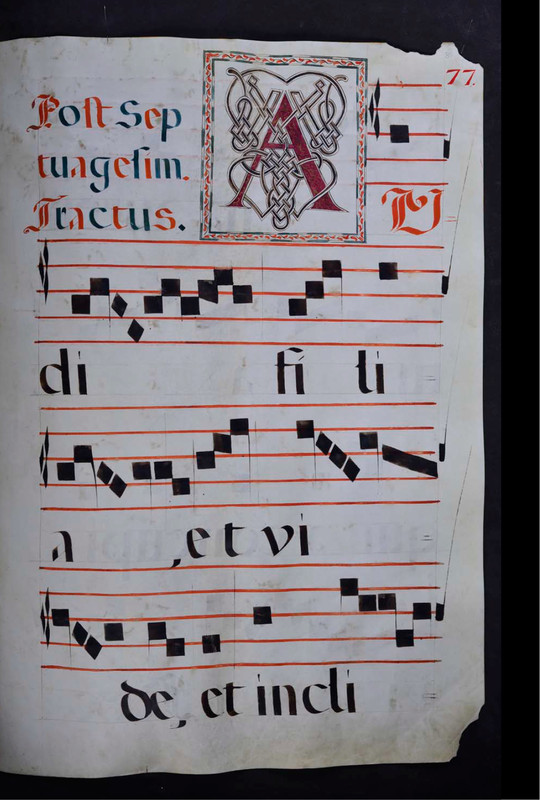 77
Post Sep
tuagesim.
Tractus.
A U
di fi li
a , et vi
de, et incli